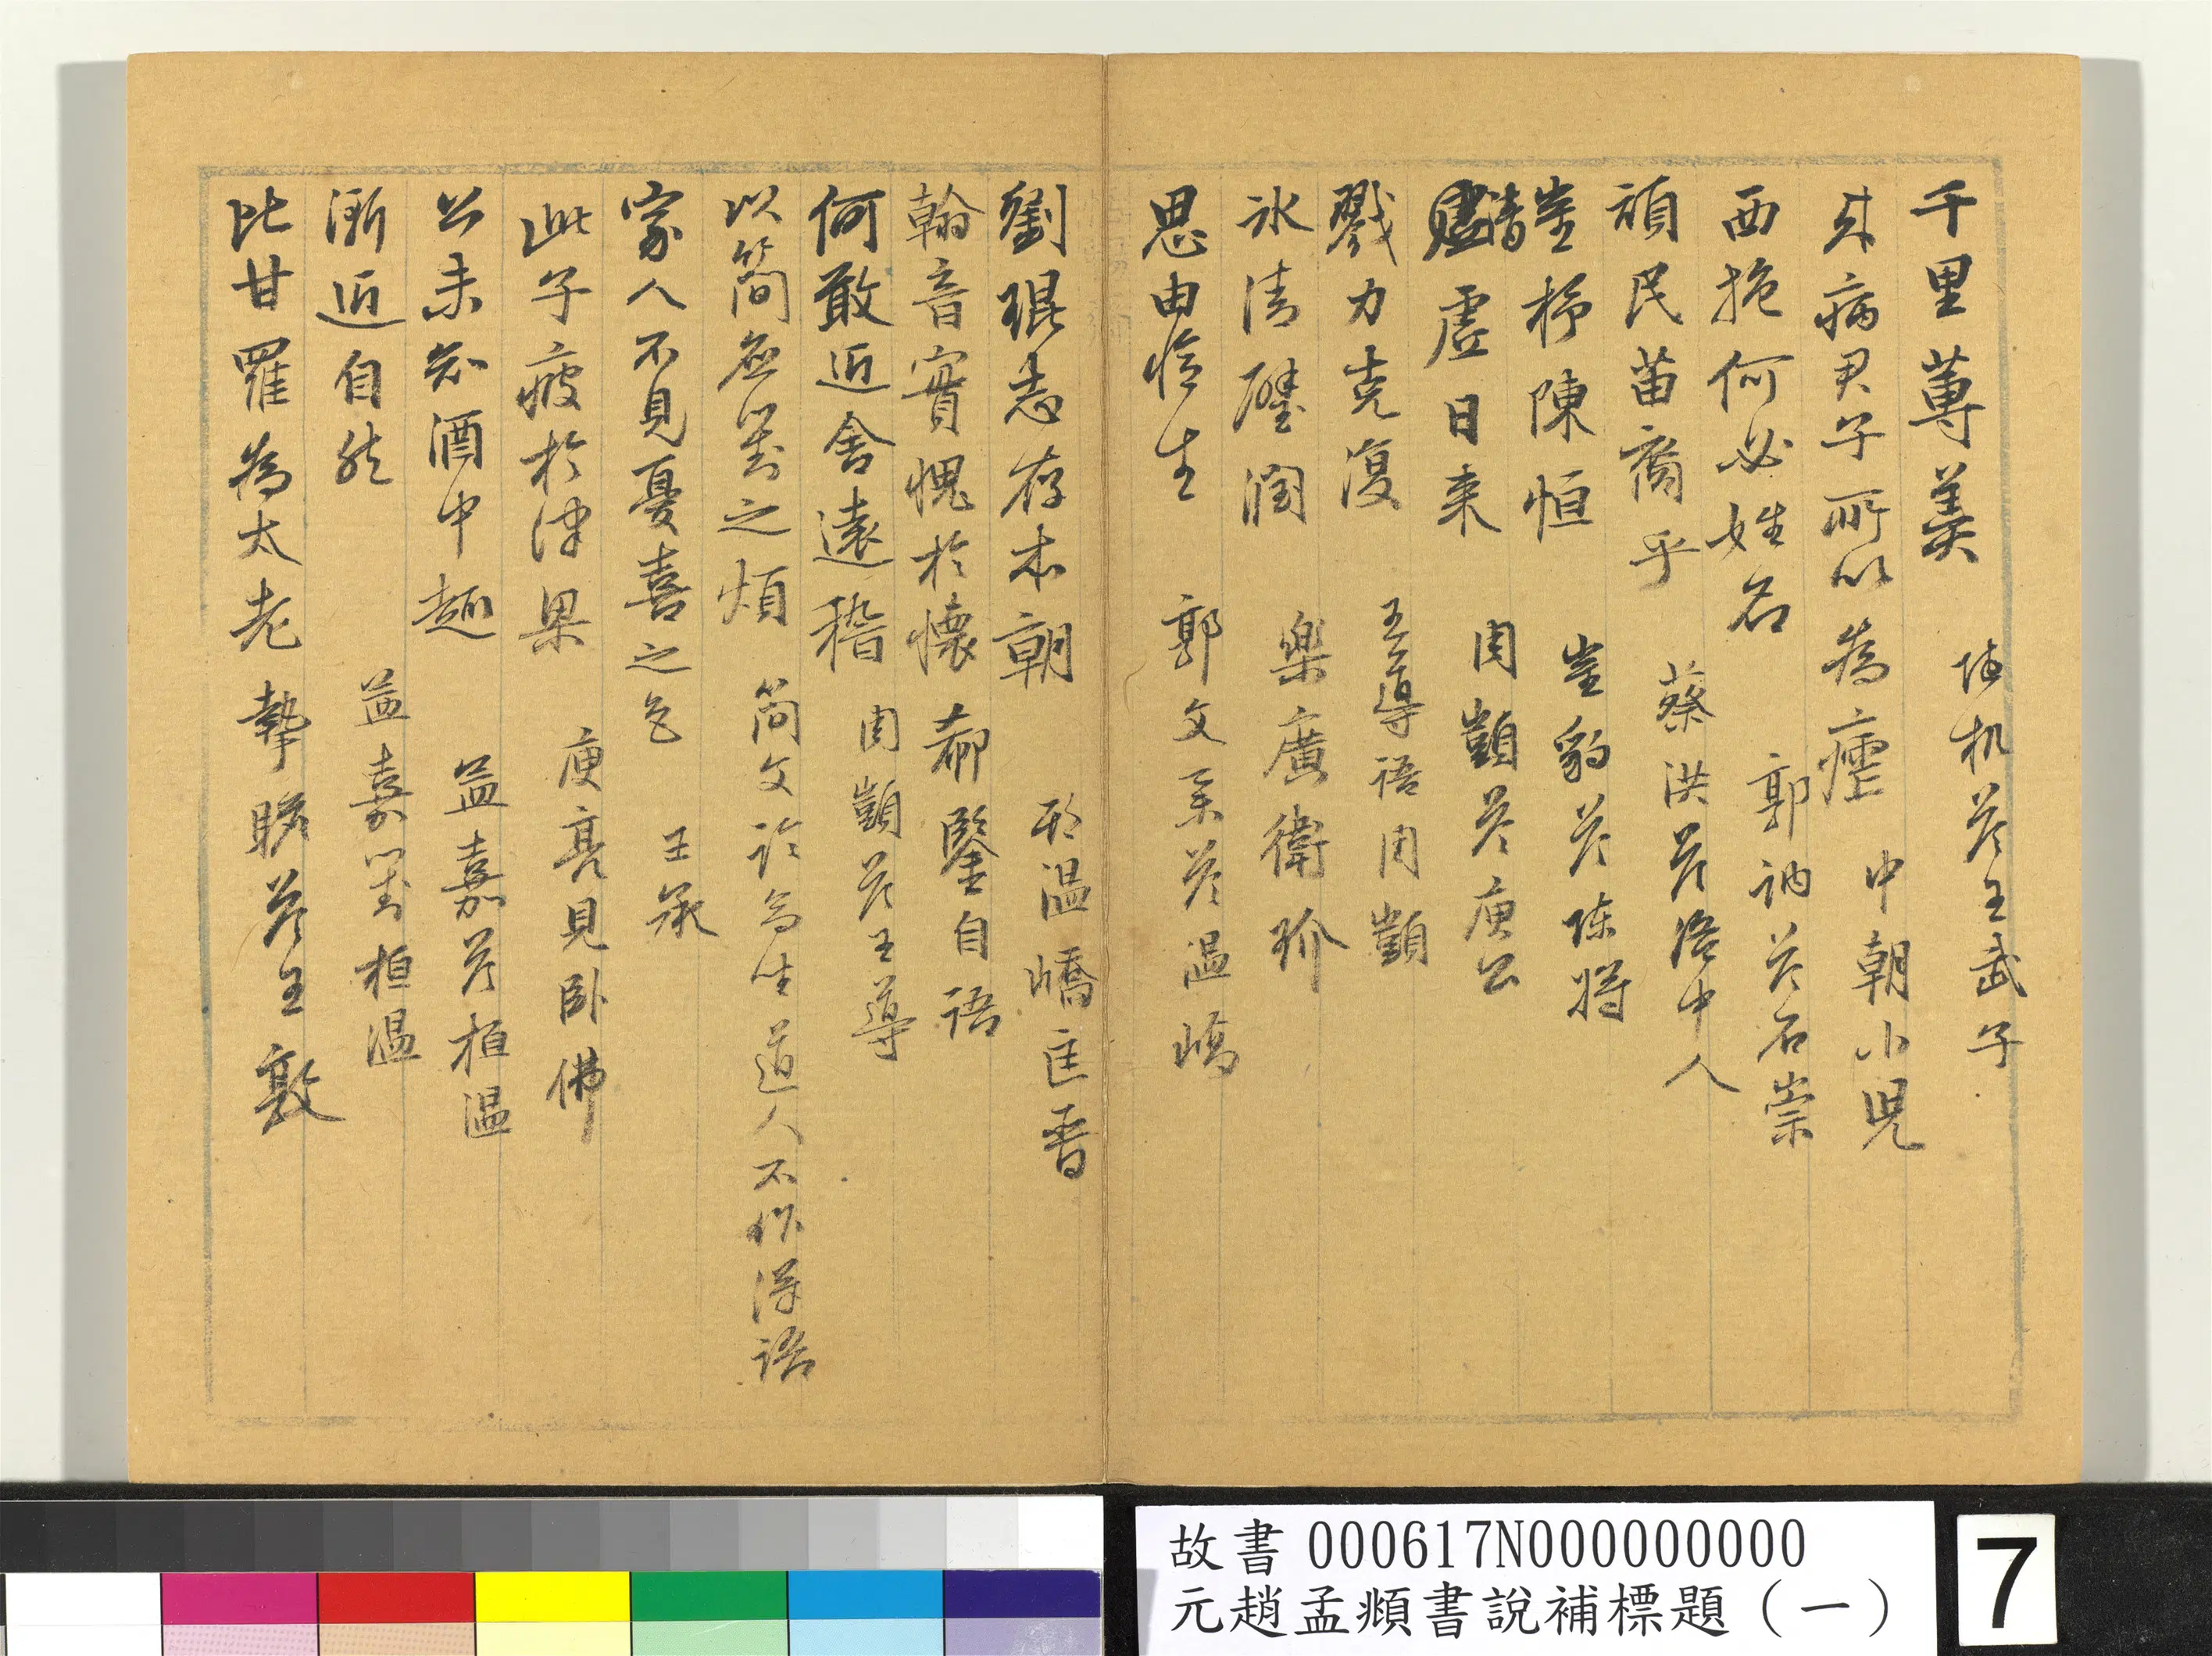 千里蓴羹 陸机答王武子
来病君子所以為瘧 中朝小児
西施何必姓名 郭訥答石崇
頑民苗裔乎 蔡洪答洛中人
崔杼陳恒 崔豹答陳将
清虚日来 周顗答庾公
戮力克復 王導語周顗
氷清璧潤 樂廣衛玠
思由憶生 郭文系答温嶠
劉琨志存本朝 形温嶠匡晋
翰音實愧於懷 郗鑒自語
何敢近舍遠稽 周顗答王導
以簡應對之煩 簡文許高坐道人不作漢語
家人不見憂喜之色 王承
此子疲於津梁 庾亮見卧佛
公未知酒中趣 孟嘉答桓温
漸近自然 孟嘉對桓温
比甘羅為太老 摯瞻答王敦
故書000617N000000000
元趙孟頫書說補標題（一）
7